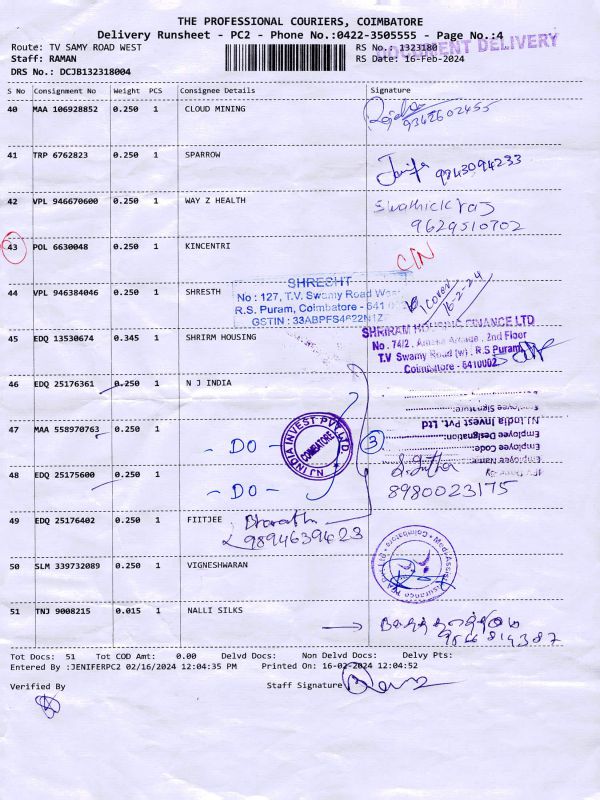 THE PROFESSIONAL COURIERS, COIMBATORE
Delivery Runsheet - PC2 - Phone No.:0422-3505555 - Page No.:4
Route: TV SAMY ROAD WEST
RS No.: 1323180
DOCUMENT DELIVERY
Staff: RAMAN
RS Date: 16-Feb-2024
DRS No.: DCJB132318004
S No Consignment No Weight PCS Consignee Details Signature
40 MAA 106928852 0.250 1 CLOUD MINING
9342602455
41 TRP 6762823 0.250 1 SPARROW
9843094233
42 VPL 946670600 0.250 1 WAY Z HEALTH
Swathickraj
9629510702
43 POL 6630048 0.250 1 KINCENTRI
C/N
SHRESHT
No : 127, T.V. Swamy Road West
R.S. Puram, Coimbatore - 641 002
GSTIN : 33ABPFS4622N1Z
44 VPL 946384046 0.250 1 SHRESTH
1 cover
16-2-24
SHRIRAM HOUSING FINANCE LTD
No. 74/2, Arcade, 2nd Floor
T.V Swamy Road (w), R.S Puram,
Coimbatore - 641002
45 EDQ 13530674 0.345 1 SHRIRM HOUSING
46 EDQ 25176361 0.250 1 N J INDIA
Employee Signature:
NJ India Invest Pvt. Ltd
Employee Designation:
Employee Code:
Employee Name:
47 MAA 558970763 0.250 1 - DO -
NJ INDIA INVEST PVT. LTD.
COIMBATORE
3
48 EDQ 25175600 0.250 1 - DO -
8980023175
49 EDQ 25176402 0.250 1 FIITJEE
Bharath
9894639423
50 SLM 339732089 0.250 1 VIGNESHWARAN
51 TNJ 9008215 0.015 1 NALLI SILKS
Tot Docs: 51 Tot COD Amt: 0.00 Delvd Docs: Non Delvd Docs: Delvy Pts:
Entered By :JENIFERPC2 02/16/2024 12:04:35 PM Printed On: 16-02-2024 12:04:52
Verified By
Staff Signature